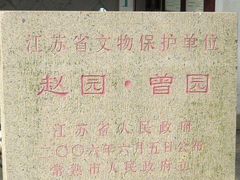 江苏省文物保护单位
赵园·曾园
江苏省人民政府
二〇〇六年六月五日公布
常熟市人民政府立